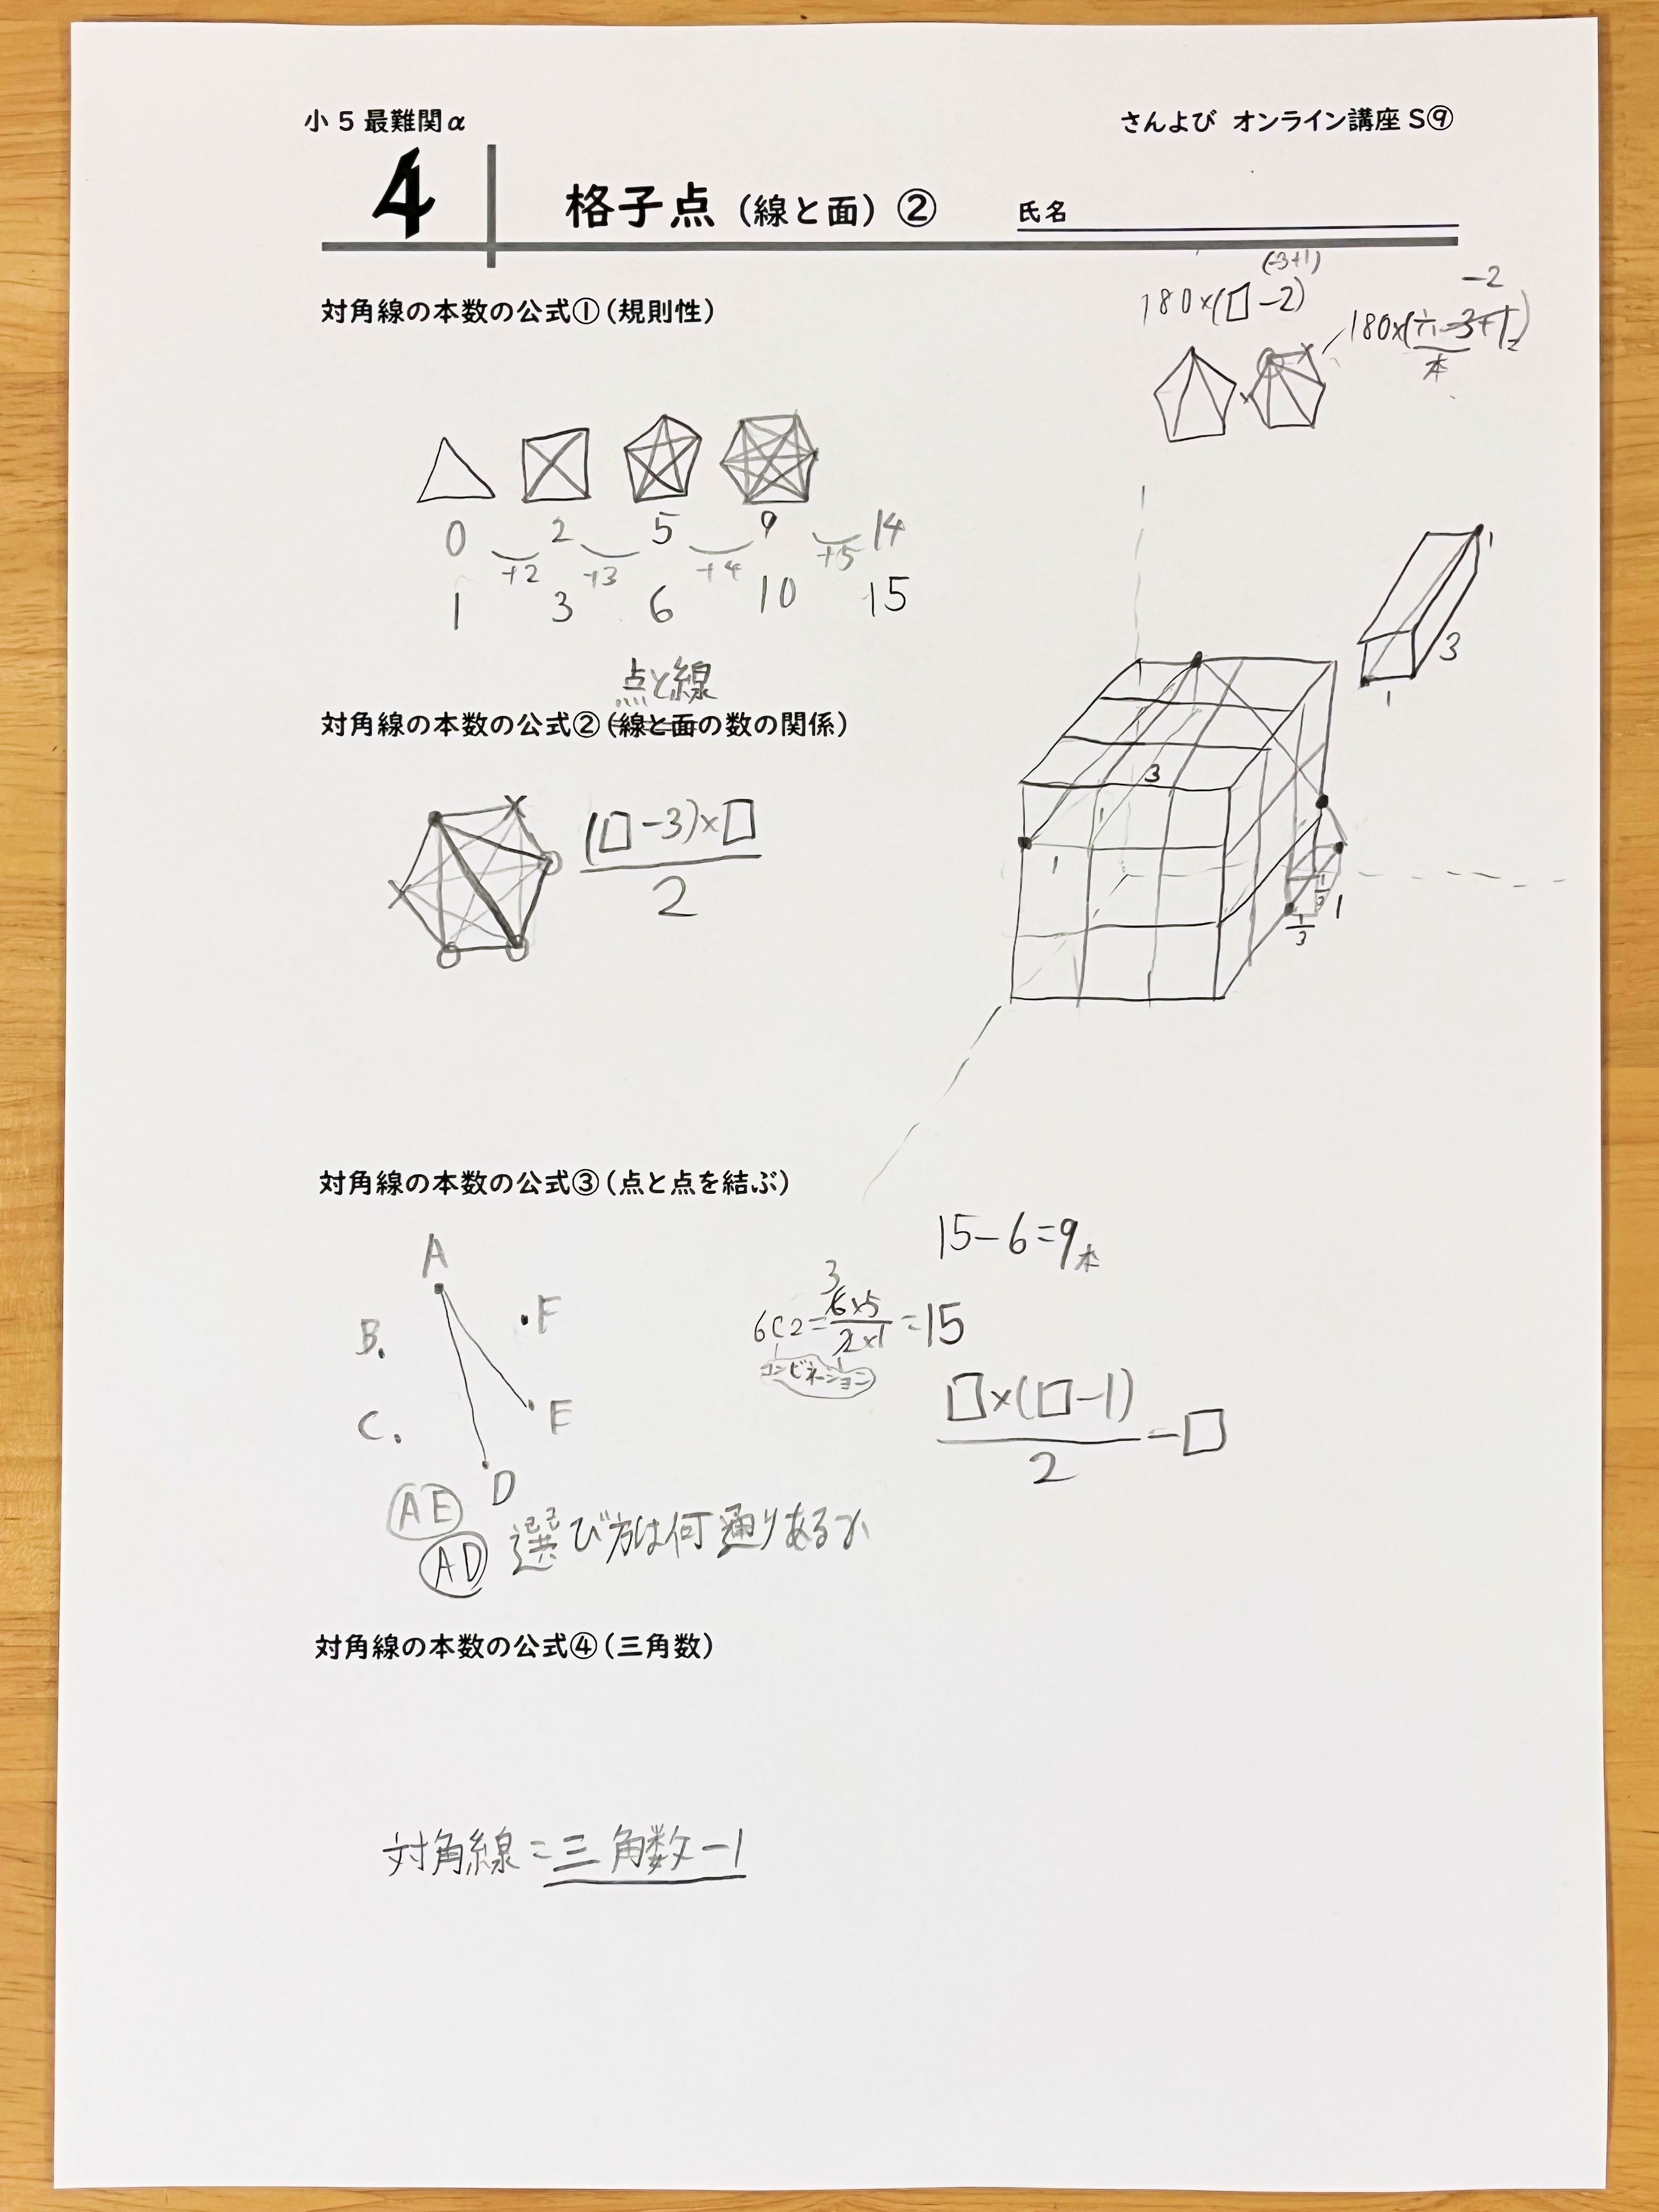 小5最難関α
さんよび オンライン講座 S⑨
4
格子点（線と面）②
氏名
対角線の本数の公式①（規則性）
(-3+1)
180×(□-2)
-2
0 2 5 9 14
+2 +3 +4 +5
1 3 6 10 15
点と線
対角線の本数の公式②（線と面の数の関係）
(□-3)×□
2
1
3
1
3
1
1
1
3
対角線の本数の公式③（点と点を結ぶ）
A
B.
C.
D
E
・F
15-6=9本
3
6C2=6×5/2×1=15
コンビネーション
□×(□-1)
2
-□
AE
AD
選び方は何通りあるか
対角線の本数の公式④（三角数）
対角線=三角数-1